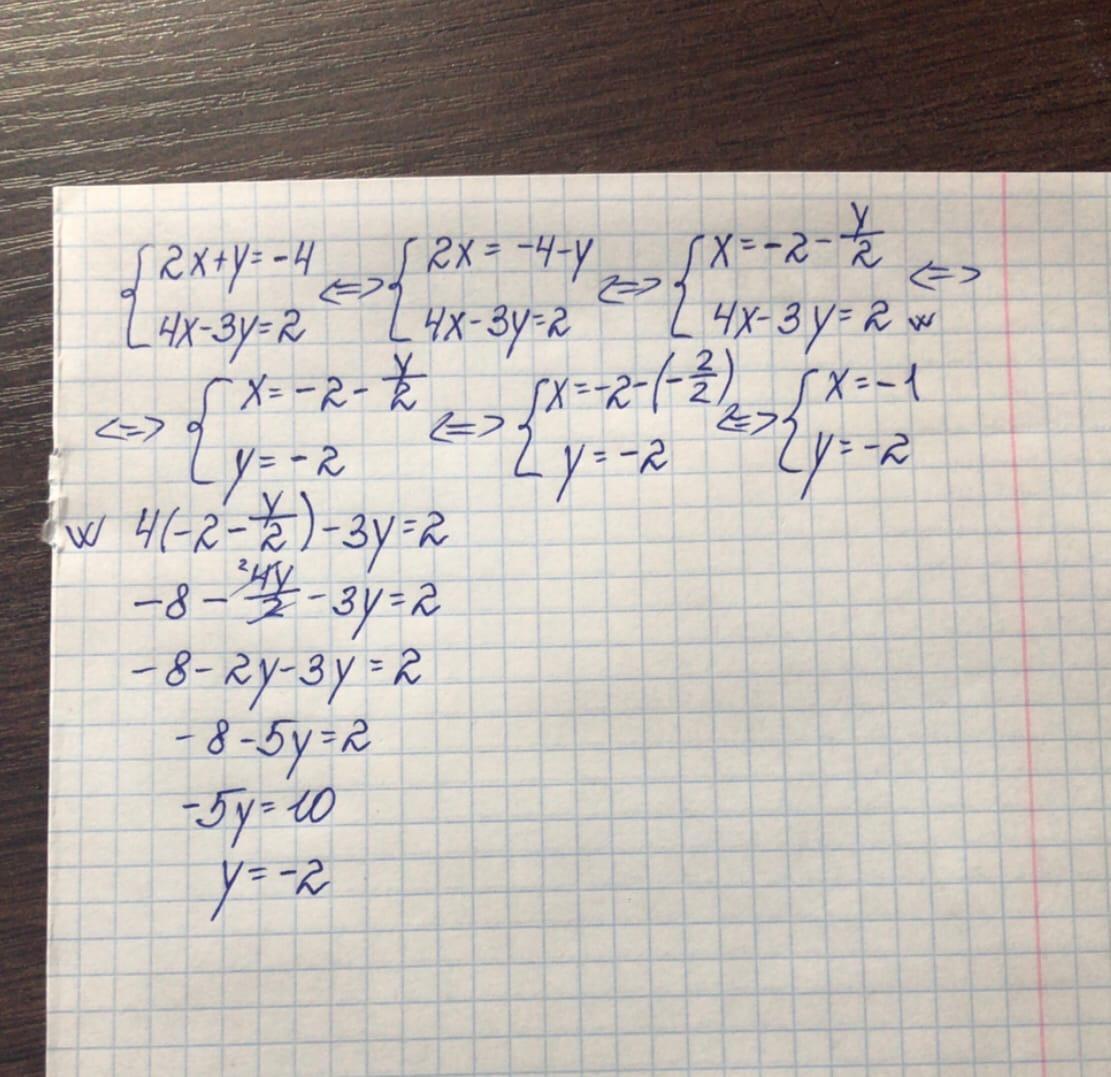 { 2x+y=-4 <=> { 2x=-4-y <=> { x=-2-y/2 <=>
4x-3y=2 4x-3y=2 4x-3y=2 w
<=> { x=-2-y/2 <=> { x=-2-(-2/2) <=> { x=-1
y=-2 y=-2 y=-2
w 4(-2-y/2)-3y=2
-8-²4y/2-3y=2
-8-2y-3y=2
-8-5y=2
-5y=10
y=-2